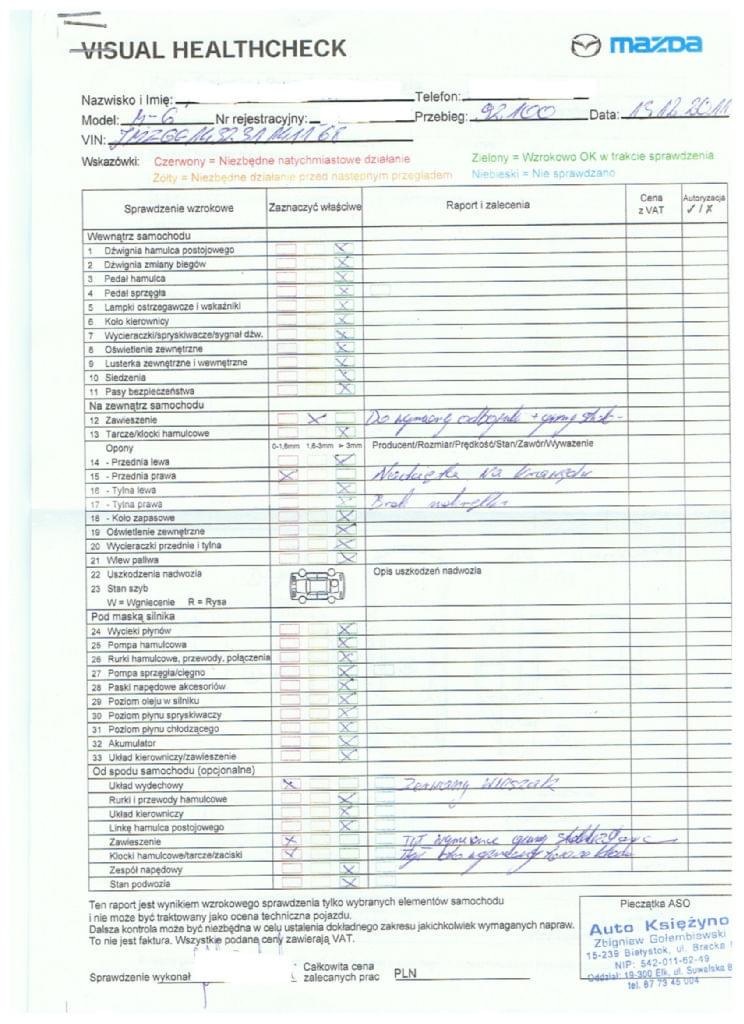 VISUAL HEALTHCHECK
mazda
Nazwisko i Imię:
Telefon:
Model: M-6 Nr rejestracyjny: Przebieg: 92100 Data: 19.12.2011
VIN:
Wskazówki: Czerwony = Niezbędne natychmiastowe działanie Zielony = Wzrokowo OK w trakcie sprawdzenia
Żółty = Niezbędne działanie przed następnym przeglądem Niebieski = Nie sprawdzano
Sprawdzenie wzrokowe Zaznaczyć właściwe Raport i zalecenia Cena z VAT Autoryzacja ✓ / ✗
Wewnątrz samochodu
1 Dźwignia hamulca postojowego
2 Dźwignia zmiany biegów
3 Pedał hamulca
4 Pedał sprzęgła
5 Lampki ostrzegawcze i wskaźniki
6 Koło kierownicy
7 Wycieraczki/spryskiwacze/sygnał dźw.
8 Oświetlenie zewnętrzne
9 Lusterka zewnętrzne i wewnętrzne
10 Siedzenia
11 Pasy bezpieczeństwa
Na zewnątrz samochodu
12 Zawieszenie Do wymiany odboje + gumy stab.
13 Tarcze/klocki hamulcowe
Opony 0-1,6mm 1,6-3mm > 3mm Producent/Rozmiar/Prędkość/Stan/Zawór/Wyważenie
14 - Przednia lewa
15 - Przednia prawa na
16 - Tylna lewa
17 - Tylna prawa Brak
18 - Koło zapasowe
19 Oświetlenie zewnętrzne
20 Wycieraczki przednie i tylna
21 Wlew paliwa
22 Uszkodzenia nadwozia Opis uszkodzeń nadwozia
23 Stan szyb
W = Wgniecenie R = Rysa
Pod maską silnika
24 Wycieki płynów
25 Pompa hamulcowa
26 Rurki hamulcowe, przewody, połączenia
27 Pompa sprzęgła/cięgno
28 Paski napędowe akcesoriów
29 Poziom oleju w silniku
30 Poziom płynu spryskiwaczy
31 Poziom płynu chłodzącego
32 Akumulator
33 Układ kierowniczy/zawieszenie
Od spodu samochodu (opcjonalne)
Układ wydechowy Zerwany wieszak
Rurki i przewody hamulcowe
Układ kierowniczy
Linkę hamulca postojowego
Zawieszenie Tył gumy
Klocki hamulcowe/tarcze/zaciski Tył
Zespół napędowy
Stan podwozia
Ten raport jest wynikiem wzrokowego sprawdzenia tylko wybranych elementów samochodu
i nie może być traktowany jako ocena techniczna pojazdu.
Dalsza kontrola może być niezbędna w celu ustalenia dokładnego zakresu jakichkolwiek wymaganych napraw.
To nie jest faktura. Wszystkie podane ceny zawierają VAT.
Pieczątka ASO
Auto Księżyno
Zbigniew Gołembiewski
15-239 Białystok, ul. Bracka
NIP: 542-011-62-49
Oddział: 19-300 Ełk, ul. Suwalska
tel. 87 73 45 004
Sprawdzenie wykonał
Całkowita cena
zalecanych prac PLN